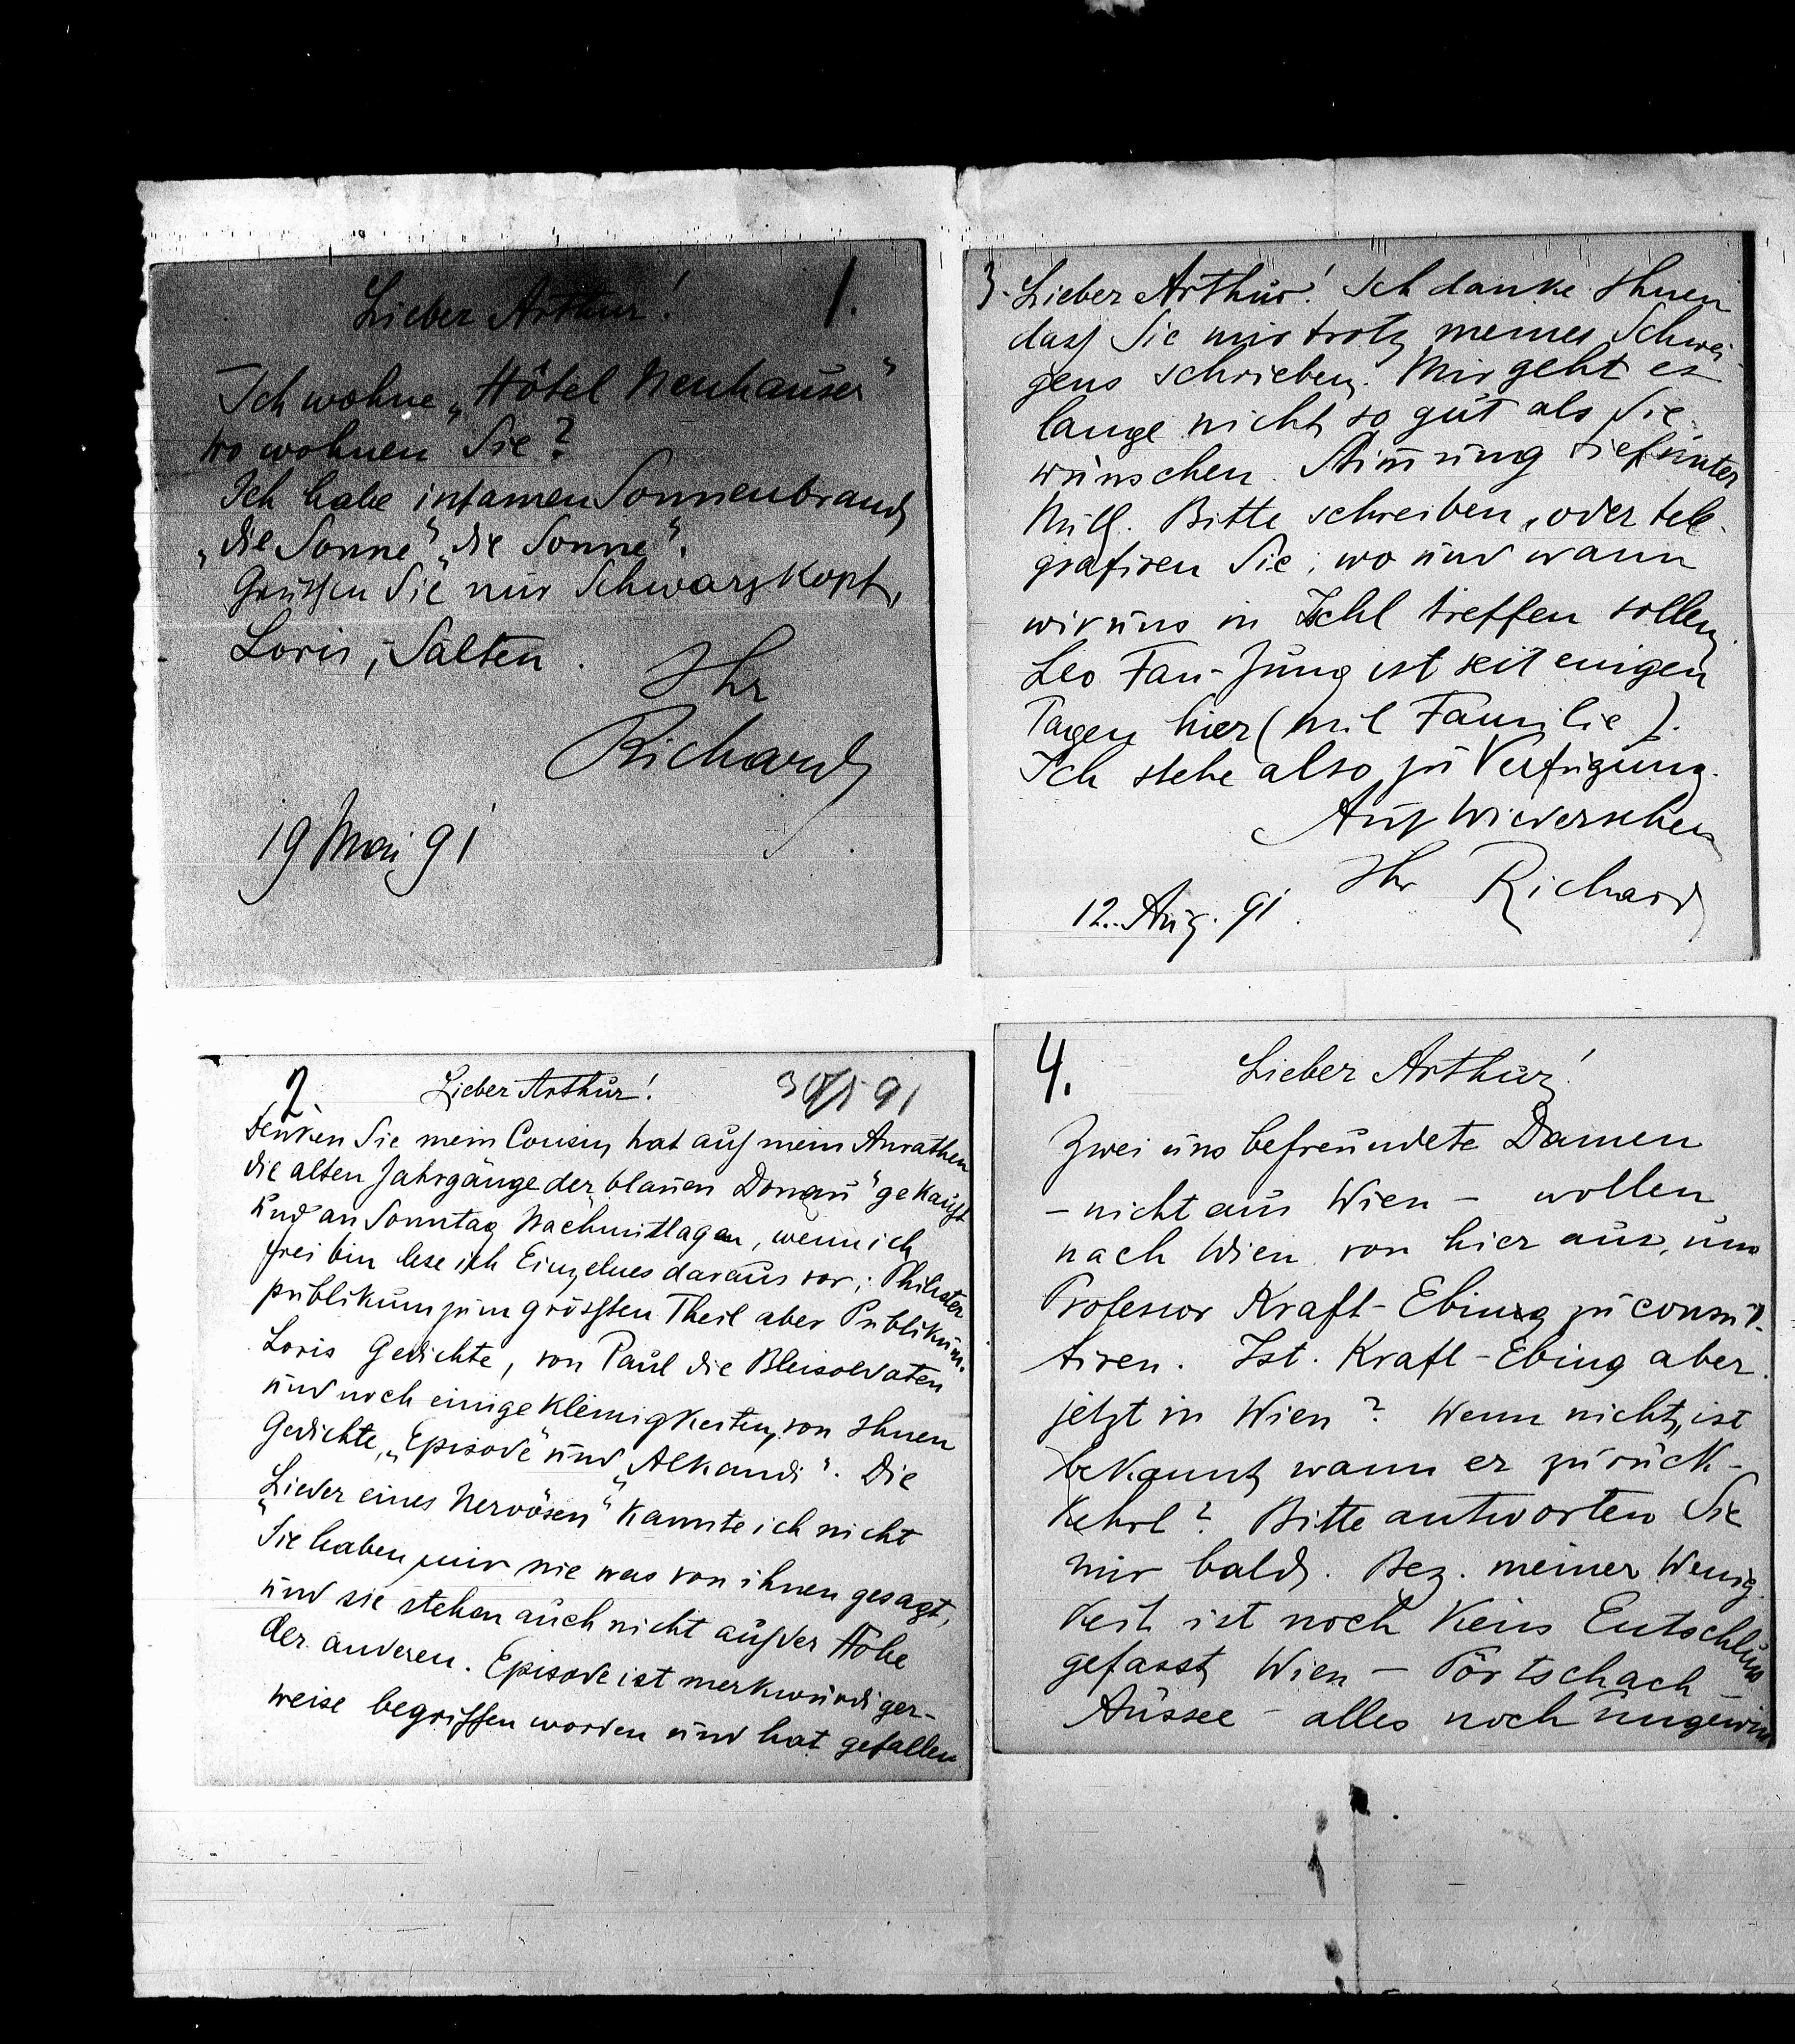 1.
Lieber Arthur!
Ich wohne „Hôtel Neuhauser"
wo wohnen Sie?
Ich habe infamen Sonnenbrand,
„die Sonne" „die Sonne".
Grüssen Sie mir Schwarzkopf,
Loris, Salten.
Ihr
Richard
19 Mai 91
2.
Lieber Arthur!
30/5 91
Denken Sie mein Cousin hat auf mein Anrathen
die alten Jahrgänge der „blauen Donau" gekauft
und an Sonntag Nachmittagen, wenn ich
frei bin lese ich Einzelnes daraus vor; Philister
publikum zum grössten Theil aber Publikum.
Loris Gedichte, von Paul die Bleisoldaten
und noch einige Kleinigkeiten, von Ihnen
Gedichte, „Episode" und „Alkandi". Die
„Lieder eines Nervösen" kannte ich nicht
Sie haben mir nie was von ihnen gesagt,
und sie stehen auch nicht auf der Höhe
der anderen. Episode ist merkwürdiger-
weise begriffen worden und hat gefallen
3. Lieber Arthur! Ich danke Ihnen
dass Sie mir trotz meines Schwei-
gens schrieben. Mir geht es
lange nicht so gut als Sie
wünschen. Stimmung tief unter
Null. Bitte schreiben, oder tele-
grafiren Sie, wo und wann
wir uns in Ischl treffen sollen.
Leo Fan-Jung ist seit einigen
Tagen hier (mit Familie).
Ich stehe also zu Verfügung.
Auf Wiedersehen
Ihr Richard
12. Aug. 91.
4.
Lieber Arthur!
Zwei uns befreundete Damen
– nicht aus Wien – wollen
nach Wien von hier aus, um
Professor Kraft-Ebing zu consul-
tiren. Ist Kraft-Ebing aber
jetzt in Wien? Wenn nicht, ist
bekannt, wann er zurück-
kehrt? Bitte antworten Sie
mir bald. Bez. meiner Wenig
keit ist noch kein Entschluss
gefasst, Wien – Pörtschach –
Aussee – alles noch ungewiss